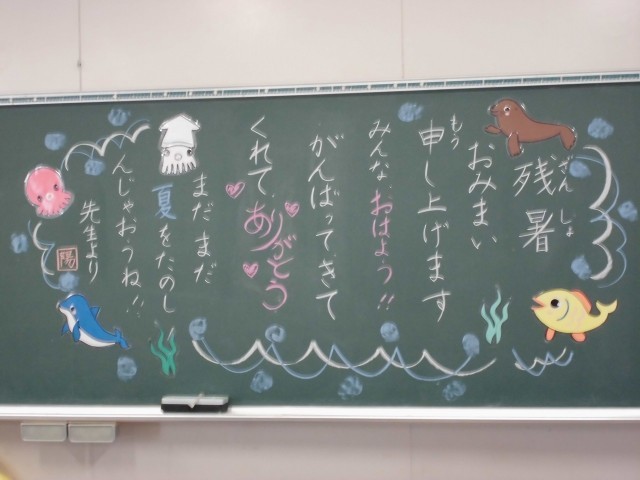 残暑
ざんしょ
おみまい
もう
申し上げます
みんな、おはよう!!
がんばってきて
くれて、ありがとう
まだまだ
夏をたのし
んじゃおうね!!
先生より
陽